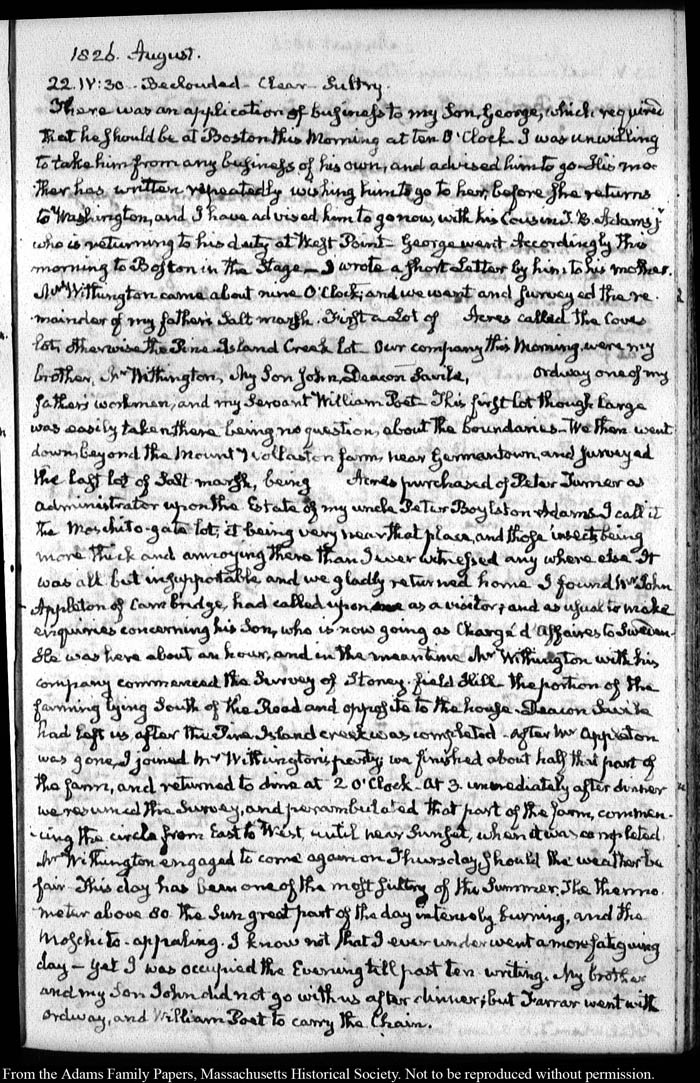 1826. August.
22. IV:30. Beclouded. Clear Sultry.
There was an application of business to my Son, George, which required
that he should be at Boston this Morning at ten O'Clock. I was unwilling
to take him from any business of his own, and advised him to go. His mo-
ther has written repeatedly wishing him to go to her, before she returns
to Washington, and I have advised him to go now, with his Cousin J. B. Adams jr
who is returning to his duty at West Point. George went accordingly this
morning to Boston in the Stage. I wrote a short Letter by him to his mother.
Mr Withington came about nine O'Clock, and we went and surveyed the re-
mainder of my father's Salt marsh. First a Lot of Acres called the Cove
lot, otherwise the Pine-Island Creek lot. Our company this Morning, were my
brother, Mr Withington, My Son John, Deacon Savile, Ordway one of my
father's workmen, and my Servant William Post. This first lot though large
was easily taken there being no question, about the boundaries. We then went
down, beyond the Mount Wollaston farm, near Germantown, and surveyed
the last lot of Salt marsh, being Acres purchased of Peter Turner as
administrator upon the Estate of my uncle Peter Boylston Adams. I call it
the Moschito-gate lot, it being very near that place, and those insects being
more thick and annoying there than I ever witnessed any where else. It
was all but insupportable and we gladly returned home. I found Mr John
Appleton of Cambridge, had called upon me as a visitor; and as usual to make
enquiries concerning his Son, who is now going as Chargé d'Affaires to Sweden.
He was here about an hour, and in the meantime Mr Withington with his
company commenced the Survey of Stoney-field Hill the portion of the
farming lying South of the Road and opposite to the house. Deacon Savile
had left us after the Pine Island creek was completed. After Mr Appleton
was gone, I joined Mr Withington's party; we finished about half that part of
the farm, and returned to dine at 2 O'Clock. At 3. immediately after dinner
we resumed the Survey, and perambulated that part of the farm, commen-
cing the circle from East to West, until near Sunset, when it was completed.
Mr Withington engaged to come again on Thursday, should the weather be
fair. This day has been one of the most sultry of the Summer. The thermo-
meter above 80. the Sun great part of the day intensely burning, and the
Moschito-appaling. I know not that I ever underwent a more fatiguing
day — yet I was occupied the Evening till past ten writing. My brother
and my Son John did not go with us after dinner; but Farrar went with
Ordway, and William Post to carry the Chain.
From the Adams Family Papers, Massachusetts Historical Society. Not to be reproduced without permission.